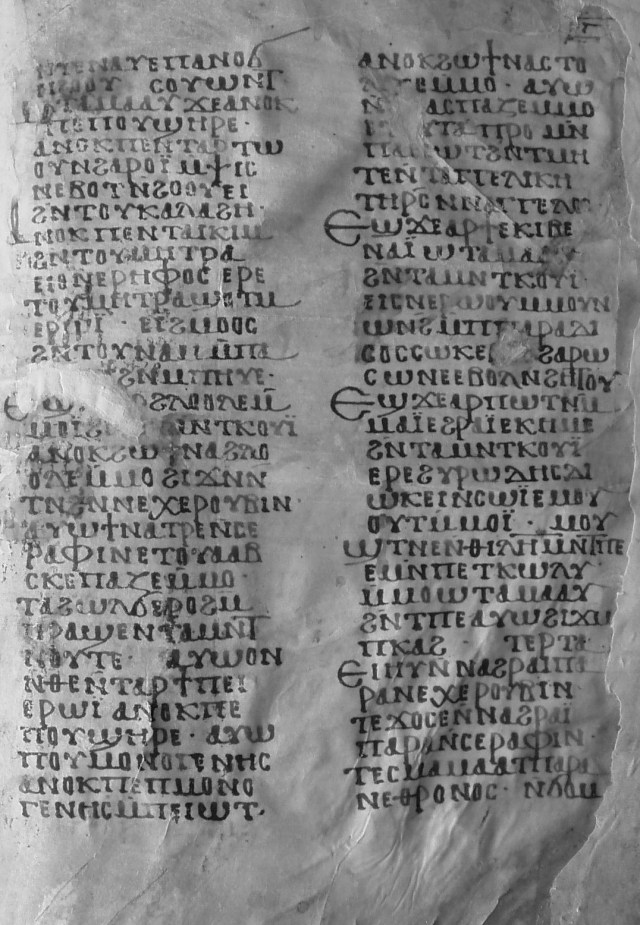 ⲚⲦⲈⲚⲀⲨⲈⲦⲠⲀⲚⲞϬ
ⲤⲞⲨⲰⲚⲦ
ⲦⲀⲘⲀⲀⲨϪⲈⲀⲚⲞⲔ
ⲠⲈⲠⲞⲨϢⲎⲢⲈ·
ⲀⲚⲞⲔⲠⲈⲚⲦⲀⲢⲦⲰ
ⲞⲨⲚϨⲀⲢⲞⲒ̈ⲘⲮⲒⲤ
ⲚⲈⲂⲞⲦⲚϨⲞⲞⲨⲈⲒ
ϨⲚⲦⲞⲨⲔⲀⲖⲀϨⲎ·
ⲀⲚⲞⲔⲠⲈⲚⲦⲀⲒⲔⲒⲘ
ϨⲚⲦⲞⲨⲘⲎⲦⲢⲀ
ⲈⲒⲞⲚⲈⲢⲎⲪⲞⲤ ⲈⲢⲈ
ⲦⲞⲨⲘⲎⲦⲢⲀϢⲞⲦⲘ
ⲈⲢⲰⲒ̈· ⲈⲒϨⲘⲞⲞⲤ
ϨⲚⲦⲞⲨⲚⲀⲘⲘⲠⲀ
ϨⲚⲘⲠⲎⲨⲈ·
ϨⲖⲞⲞⲖⲈⲘ
ⲘⲞⲒϨⲚ ⲚⲦⲔⲞⲨⲒ̈
ⲀⲚⲞⲔϨⲰϮⲚⲀϨⲖⲞ
ⲞⲖⲈⲘⲘⲞϨⲒϪⲚⲚ
ⲦⲚϨⲚⲚⲈⲬⲈⲢⲞⲨⲂⲒⲚ·
ⲀⲨⲰϮⲚⲀⲦⲢⲈⲚⲤⲈ
ⲢⲀⲪⲒⲚⲈⲦⲞⲨⲀⲀⲂ
ⲤⲔⲈⲠⲀⲌⲈⲘⲘⲞ·
ⲦⲀϨⲰⲖϬⲈⲢⲞϨⲘ
ⲠⲢⲀϢⲈⲚⲦⲀⲘⲚⲦ
ⲚⲞⲨⲦⲈ· ⲀⲨⲰⲞⲚ
ⲚⲐⲈⲚⲦⲀⲢϮⲠⲈⲒ
ⲈⲢⲰⲒ̈ ⲀⲚⲞⲔⲠⲈ
ⲠⲞⲨϢⲎⲢⲈ· ⲀⲨⲰ
ⲠⲞⲨⲘⲞⲚⲞⲄⲈⲚⲎⲤ
ⲀⲚⲞⲔⲠⲈⲠⲘⲞⲚⲞ
ⲄⲈⲚⲎⲤⲘⲠⲈⲒⲰⲦ·
ⲀⲚⲞⲔϨⲰϮⲚⲀⲤⲦⲞ
ⲈⲘⲘⲞ· ⲀⲨⲰ
ⲀⲤⲠⲀⲌⲈⲘⲘⲞ
ⲦⲀⲠⲢⲞ ⲘⲚ
ⲠⲀⲈⲒⲰⲦϨⲚⲦⲘⲎ
ⲦⲈⲚⲦⲀⲄⲄⲈⲖⲒⲔⲎ
ⲦⲎⲢⲤⲚⲚⲀⲄⲄⲈⲖⲞⲤ
ⲈϢϪⲈⲀⲢϮⲈⲔⲒⲂⲈ
ⲚⲀⲒ̈ⲰⲦⲀⲘⲀⲀⲨ
ϨⲚⲦⲀⲘⲚⲦⲔⲞⲨⲒ̈·
ⲈⲒⲤⲚⲈⲒⲈⲢⲰⲞⲨⲘⲘⲞⲨⲚ
ⲰⲚϨⲘⲠⲠⲀⲢⲀⲆⲒ
ⲤⲞⲤⲤⲰⲔ ϨⲀⲢⲰ
ⲤⲰⲚⲈⲈⲂⲞⲖⲚϨⲎⲦⲞⲨ
ⲈϢϪⲈⲀⲢⲠⲰⲦⲚⲘ
ⲘⲀⲒ̈ⲈϨⲢⲀⲒ̈ⲈⲔⲎⲘⲈ
ϨⲚⲦⲀⲘⲚⲦⲔⲞⲨⲒ̈
ⲈⲢⲈϨⲨⲢⲰⲆⲎⲤⲆⲒ
ⲰⲔⲈⲒⲚⲤⲰⲒ̈ⲈⲘⲞⲨ
ⲞⲨⲦⲘⲘⲞⲒ̈· ⲘⲞⲨ
ϢⲦⲚⲈⲚⲐⲒⲖⲎⲘⲚⲦⲠⲈ
ⲈⲘⲚⲠⲈⲦⲔⲰⲖⲨ
ⲘⲘⲞⲰⲦⲀⲘⲀⲀⲨ
ϨⲚⲦⲠⲈⲀⲨⲰϨⲒϪⲘ
ⲠⲔⲀϨ· ⲦⲈⲦⲀ
ⲈⲒⲎⲨⲚⲚⲀϨⲢⲀⲒ̈Ⲡ
ⲢⲀⲚⲈⲬⲈⲢⲞⲨⲂⲒⲚ
ⲦⲈϪⲞⲤⲈⲚⲚⲀϨⲢⲀⲒ̈
ⲠⲀⲢⲀⲚⲤⲈⲢⲀⲪⲒⲚ·
ⲦⲈⲤⲘⲀⲘⲀⲀⲦⲠⲀⲢⲀ
ⲚⲈⲐⲢⲞⲚⲞⲤ· ⲚϬⲞⲘ